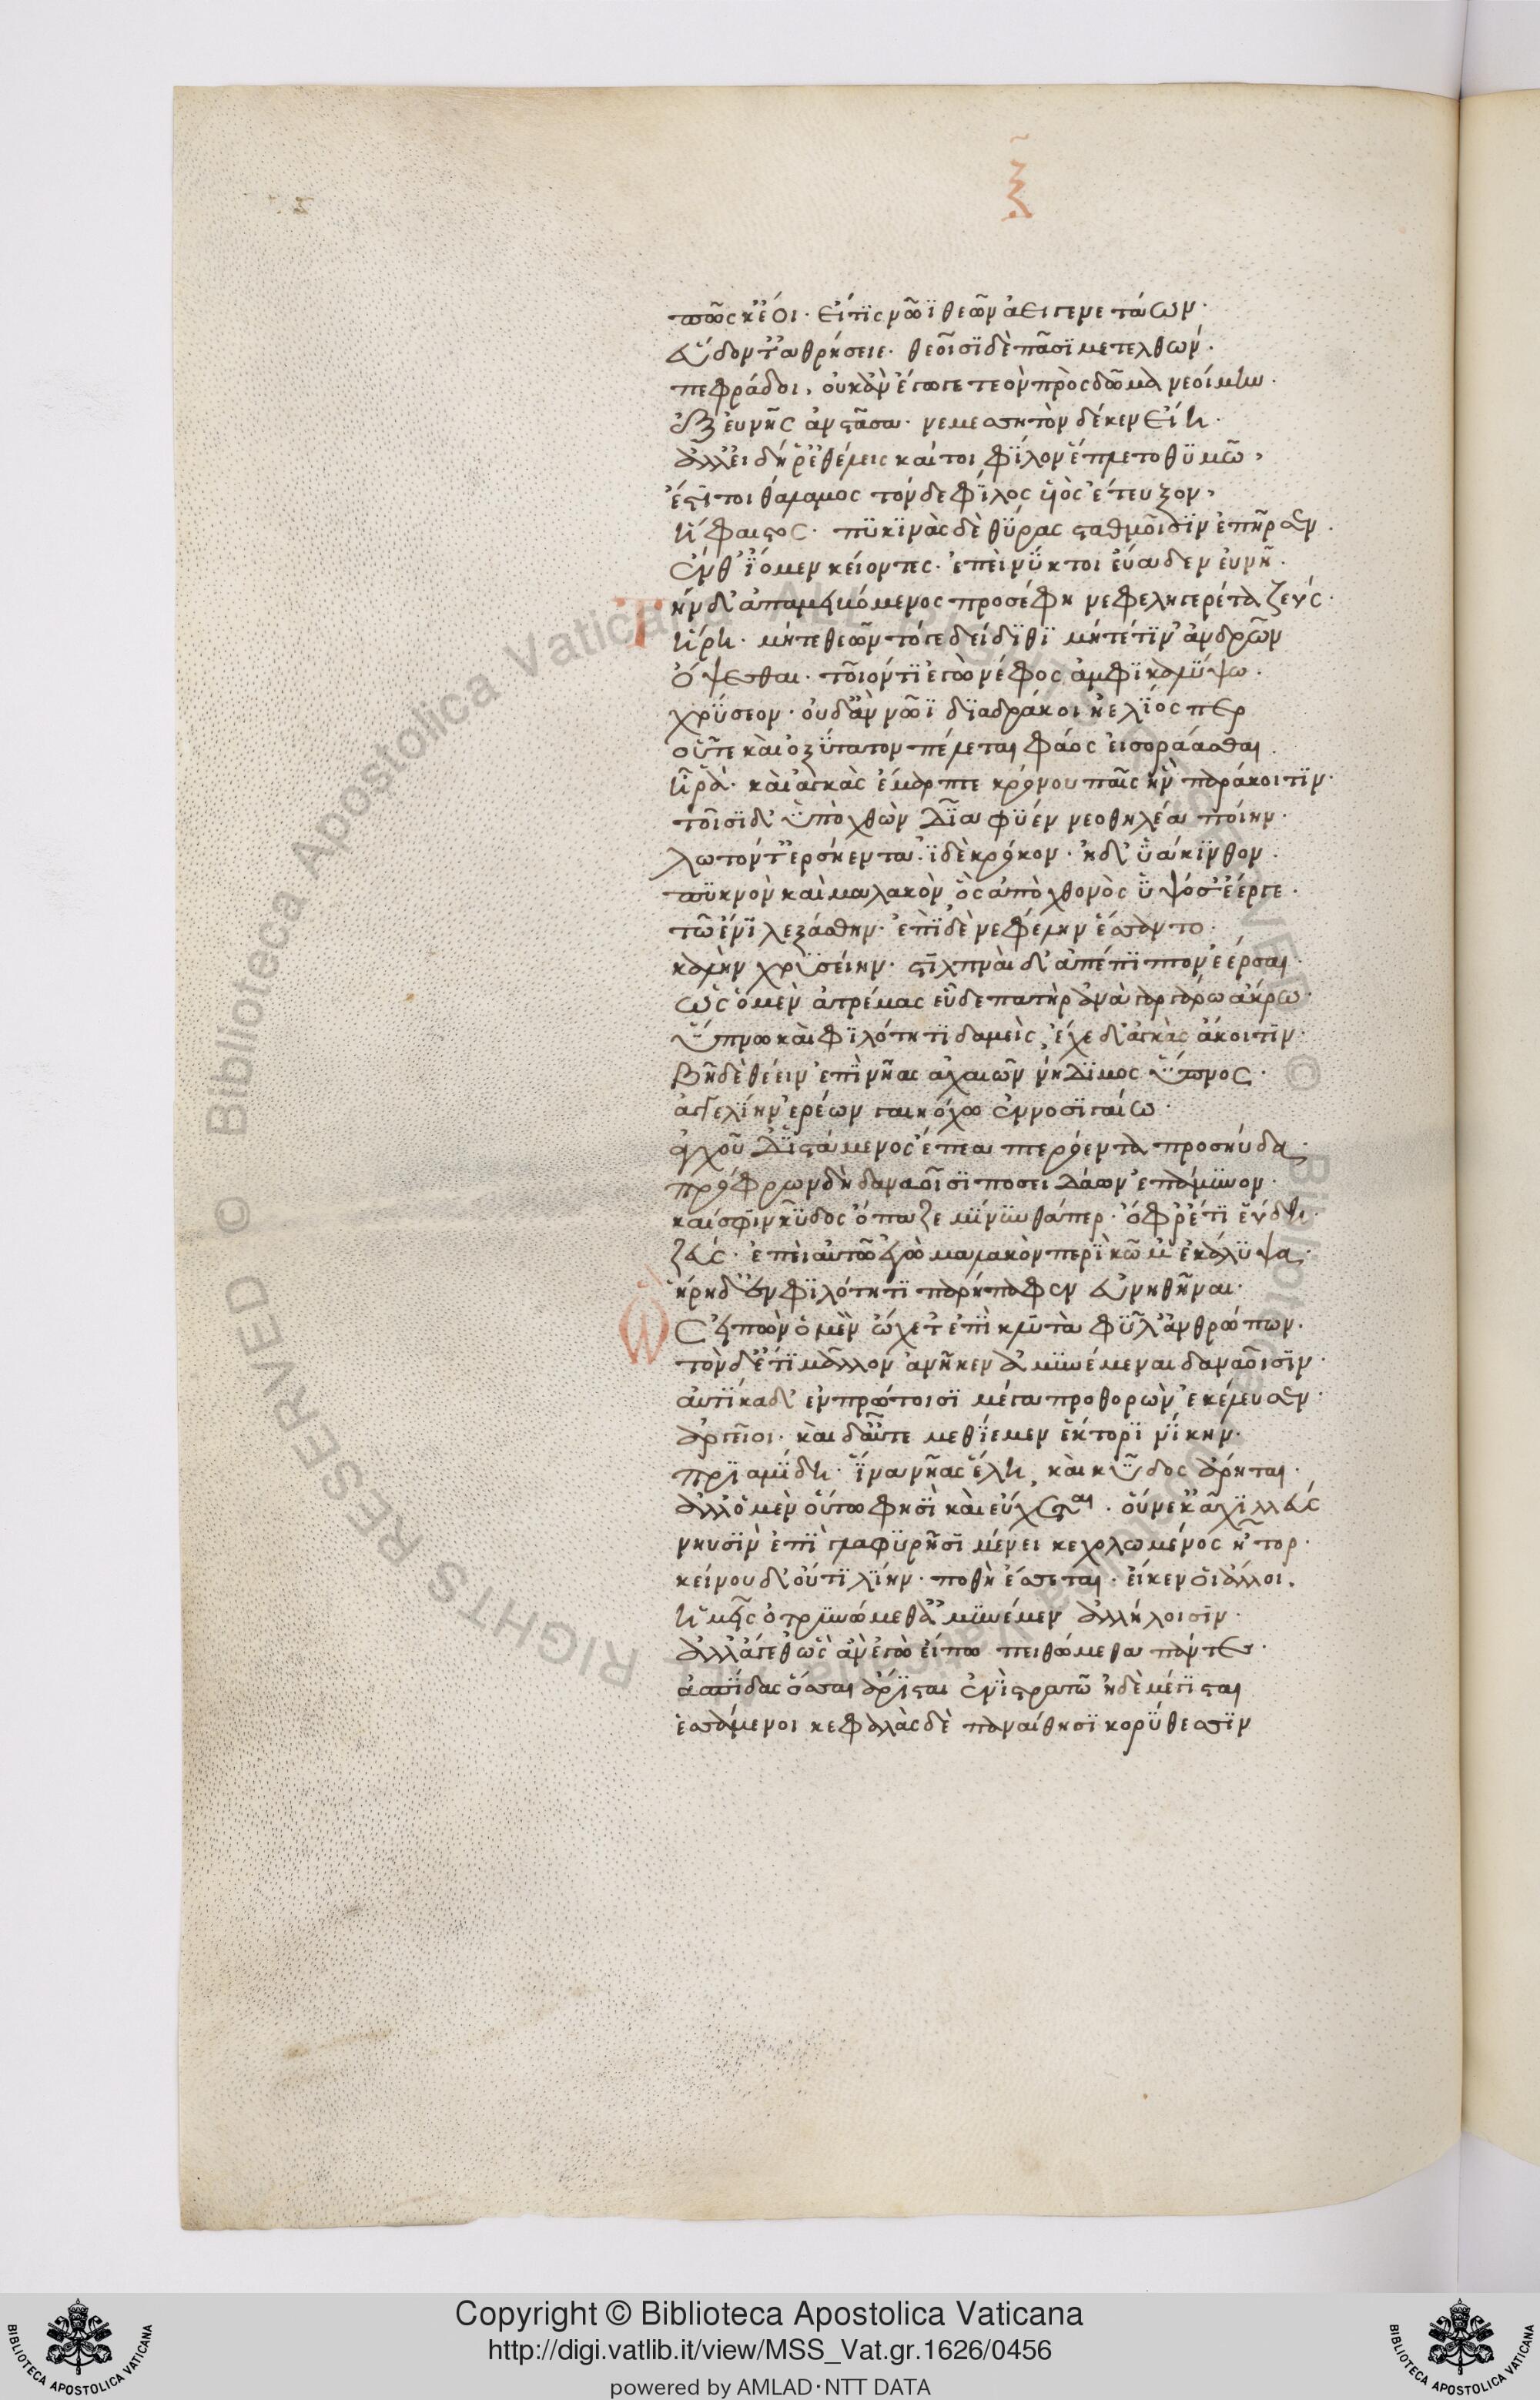 ξ̃
πῶς κ' ἔοι· εἴ τις νῶϊ θεῶν ἀειγενετάων·
εὕδοντ' ἀθρήσειε· θεοῖσι δὲ πᾶσι μετελθών·
πεφράδοι, οὐκ ἂν ἔγωγε τεὸν πρὸς δῶμα νεοίμην·
ἐξ εὐνῆς ἀνστᾶσα· νεμεσητὸν δέ κεν εἴη·
ἀλλ' εἰ δή ῥ' ἐθέλεις καί τοι φίλον ἔπλετο θυμῶ,
ἔστι τοι θάλαμος τόν δε φίλος υἱὸς ἔτευξον,
ἥφαιστος· πυκινὰς δὲ θύρας σταθμοῖσιν ἐπῆρσεν·
ἔνθ' ἴομεν κείοντες· ἐπεί νύ κτοι εὔαδεν εὐνή·
Τήν δ' ἀπαμειβόμενος προσέφη νεφεληγερέτα ζεύς·
ἥρη· μήτε θεῶν τόγε δείδιθι μήτέ τιν' ἀνδρῶν
ὄψεσθαι· τοῖόν τι ἐγὼ νέφος ἀμφικαλύψω·
χρύσεον· οὐδ' ἂν νῶϊ διαδράκοι ἠέλιός περ
οὗτε καὶ ὀξύτατον πέλεται φάος εἰσοράασθαι·
ἦ ῥα· καὶ ἀγκὰς ἔμαρπτε κρόνου παῖς ἣν παράκοιτιν·
τοῖσι δ' ὑπὸ χθὼν δῖα φύεν νεοθηλέα ποίην·
λωτόν τ' ἑρσήεντα· ἰδὲ κρόκον· ἠδ' ὑάκινθον·
πυκνὸν καὶ μαλακὸν, ὃς ἀπὸ χθονὸς ὑψόσ' ἔεργε·
τῶ ἔνι λεξάσθην· ἐπὶ δὲ νεφέλην ἕσσαντο·
καλὴν χρυσείην· στιλπναὶ δ' ἀπέπιπτον ἔερσαι·
ὣς ὁ μὲν ἀτρέμας εὗδε πατὴρ ἀνὰ γαργάρω ἄκρω·
ὕπνω καὶ φιλότητι δαμεὶς, ἔχε δ' ἀγκὰς ἄκοιτιν·
βῆ δὲ θέειν ἐπὶ νῆας ἀχαιῶν νήδυμος ὕπνος·
ἀγγελίην ἐρέων γαιηόχω ἐννοσιγαίω·
ἀγχοῦ δ' ἱστάμενος ἔπεα πτερόεντα προσηύδα·
πρόφρων δὴ δαναοῖσι ποσειδάων ἐπάμυνον·
καί σφιν κῦδος ὄπαζε μίνυνθά περ· ὄφρ' ἔτι εὕδει·
ζεύς· ἐπεὶ αὐτῶ ἐγὼ μαλακὸν περὶ κῶμ' ἐκάλυψα·
ἥρη δ' ἐν φιλότητι παρήπαφεν εὐνηθῆναι·
Ὣς εἰπὼν ὁ μὲν ὤχετ' ἐπὶ κλυτὰ φῦλ' ἀνθρώπων·
τὸν δ' ἔτι μᾶλλον ἀνῆκεν ἀμυνέμεναι δαναοῖσιν·
αὐτίκα δ' ἐν πρώτοισι μέγα προθορὼν ἐκέλευσεν·
ἀργεῖοι· καὶ δ' αὖτε μεθίεμεν ἕκτορι νίκην·
πριαμίδη· ἵνα νῆας ἕλη, καὶ κῦδος ἄρηται·
ἀλλ' ὁ μὲν οὕτω φησὶ καὶ εὔχεται· οὕνεκ' ἀχιλλεὺς
νηυσὶν ἐπὶ γλαφυρῆσι μένει κεχολωμένος ἦτορ·
κείνου δ' οὔτι λίην· ποθὴ ἔσσεται· εἴκεν οἱ ἄλλοι·
ἡμεῖς ὀτρυνώμεθ' ἀμυνέμεν ἀλλήλοισιν·
ἀλλ' ἄγεθ' ὡς ἂν ἐγὼ εἴπω πειθώμεθα πάντες·
ἀσπίδας ὅσσαι ἄρισται ἐνὶ στρατῶ ἠδὲ μέγισται
ἑσσάμενοι κεφαλὰς δὲ παναίθησι κορύθεσσιν
Copyright © Biblioteca Apostolica Vaticana
http://digi.vatlib.it/view/MSS_Vat.gr.1626/0456
powered by AMLAD·NTT DATA
BIBLIOTECA APOSTOLICA VATICANA
BIBLIOTECA APOSTOLICA VATICANA
Biblioteca Apostolica Vaticana ALL RIGHTS RESERVED ©
Biblioteca Apostolica Vaticana ALL RIGHTS RESERVED ©